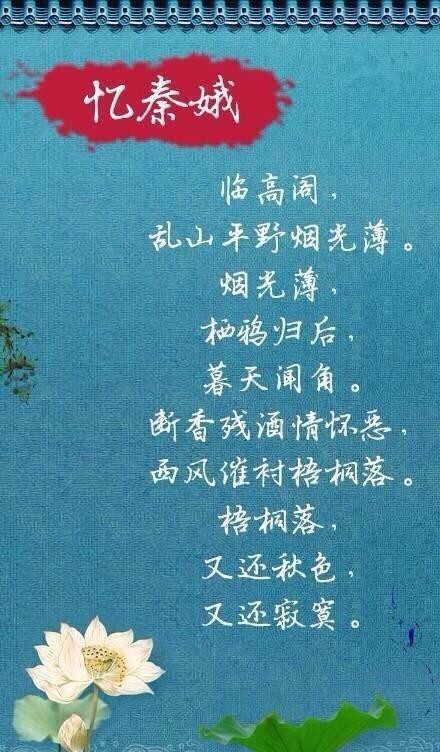 忆秦娥
临高阁，
乱山平野烟光薄。
烟光薄，
栖鸦归后，
暮天闻角。
断香残酒情怀恶，
西风催衬梧桐落。
梧桐落，
又还秋色，
又还寂寞。